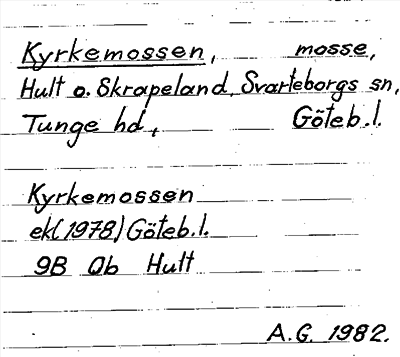 Kyrkemossen, mosse,
Hult o. Skrapeland, Svarteborgs sn,
Tunge hd, Göteb.l.
Kyrkemossen
ek(1978) Göteb.l.
9B 0b Hult
A.G. 1982.